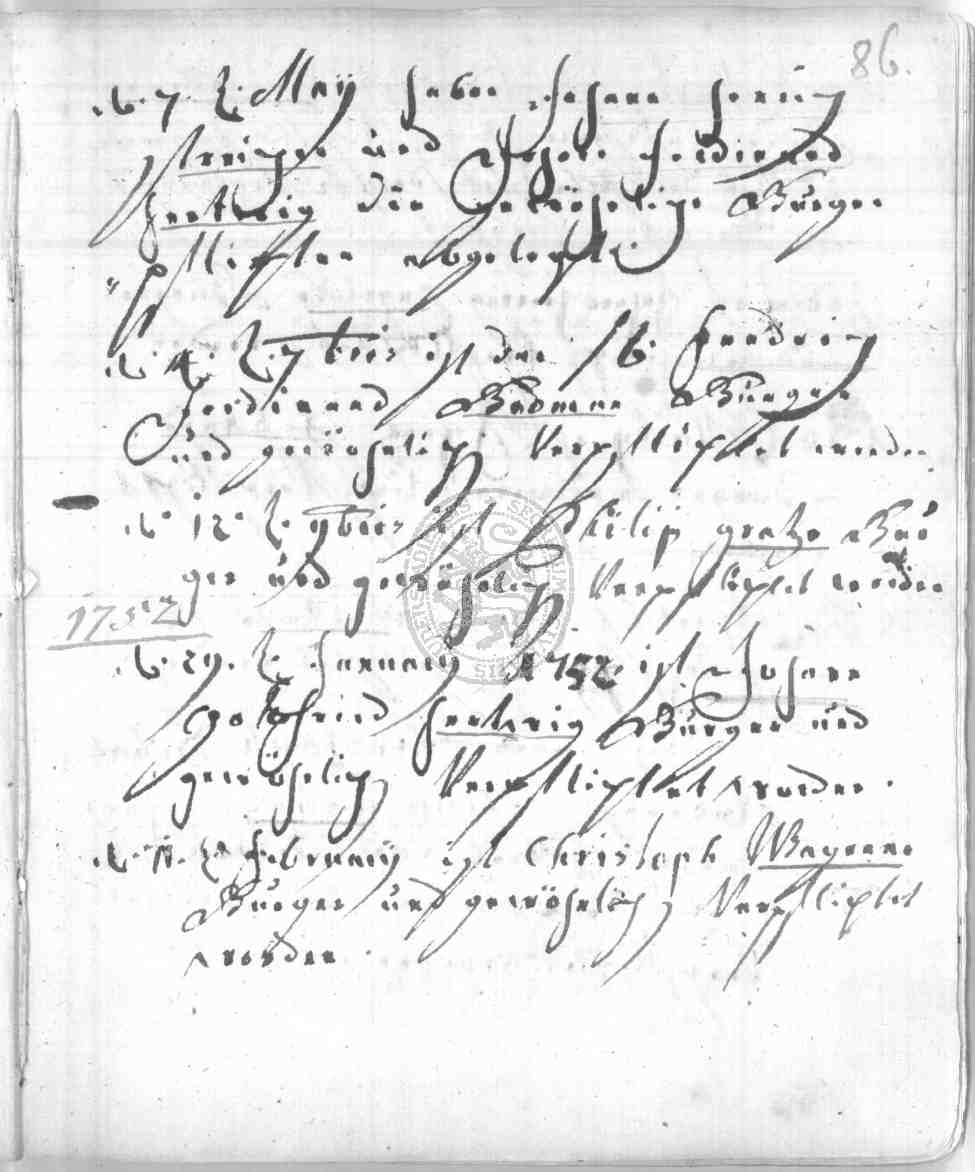 86.
d. 7. t. Maÿ haben Johann
und Joseph Ferdinand
Hertwig den gewöhnliche Bürger
Pflichten abgelegt
d. 4. t. 7bris ist der H. Fridrich
Ferdinand Burger
und gewöhnlich Verpflichtet worden
d. 12. t. 9bris ist Philip gratze Bur
ger und gewöhnlich Verpflichtet worden
1752
d. 29. t. January 1752 ist Johann
Gottfried Hertwig Burger und
gewöhnlich Verpflichtet worden.
d. t. February ist Christoph Wagner
Burger und gewöhnlich Verpflichtet
worden.